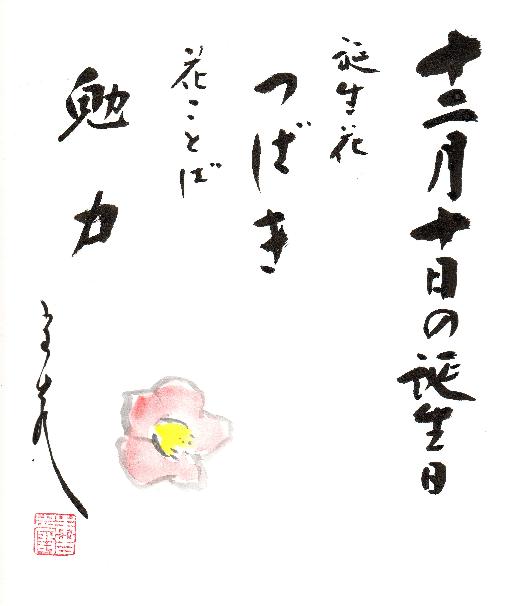 十二月十日の誕生日
誕生花
つばき
花ことば
勉力